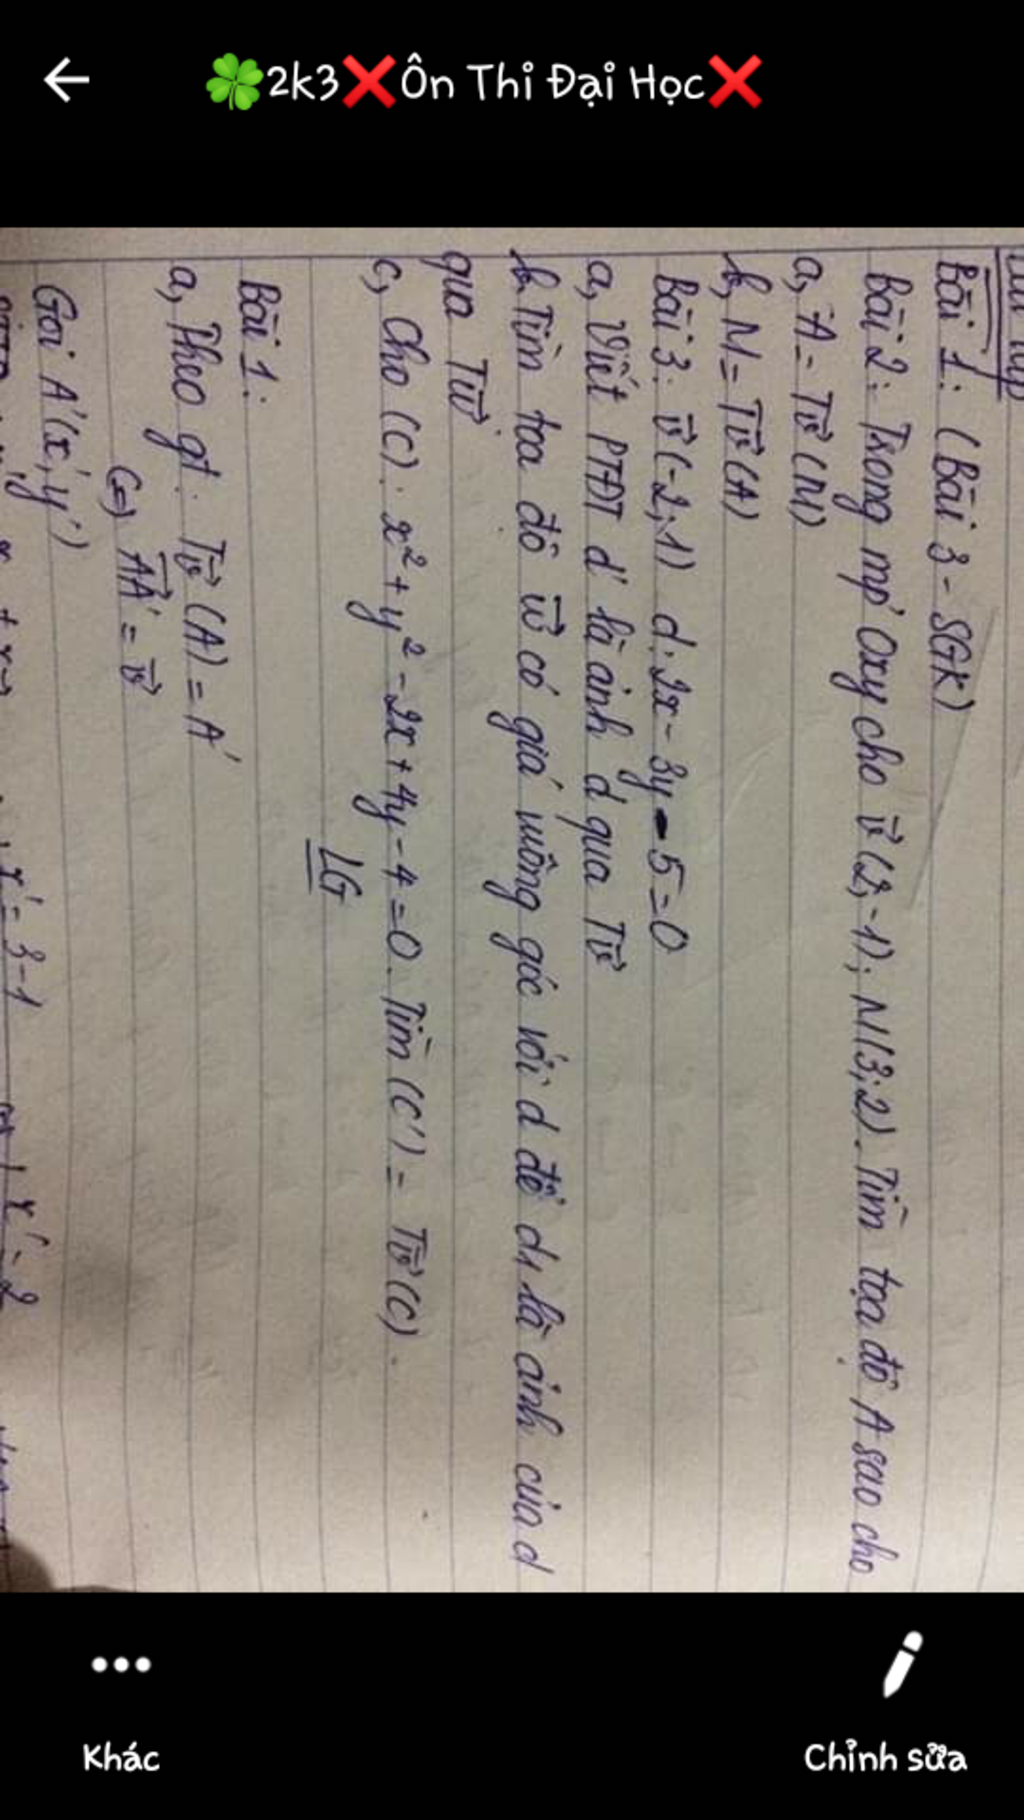 🍀2k3❌Ôn Thi Đại Học❌
Bài 1: (Bài 3 - SGK)
Bài 2: Trong mp Oxy cho v⃗ (2;-1); M(3;2). Tìm tọa độ A sao cho
a, A = Tv⃗ (M)
b, M = Tv⃗ (A)
Bài 3: v⃗ (-2;1) d: 2x - 3y - 5 = 0
a, Viết PTĐT d' là ảnh d qua Tv⃗
b, Tìm tọa độ w⃗ có giá vuông góc với d để d1 là ảnh của d
qua Tw⃗
c, Cho (C): x² + y² - 2x + 4y - 4 = 0. Tìm (C') = Tv⃗ (C).
LG
Bài 1:
a, Theo gt: Tv⃗ (A) = A'
(=) AA'⃗ = v⃗
Gọi A'(x';y')
x' = 3 - 1
x' = 2
Khác
Chỉnh sửa